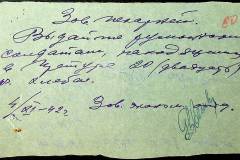 Зав. пекарней.
Выдайте румынским
солдатам, находящим
в Претуре 20 (двадцать)
кг. хлеба.
4/XI-42г. Зав.
80